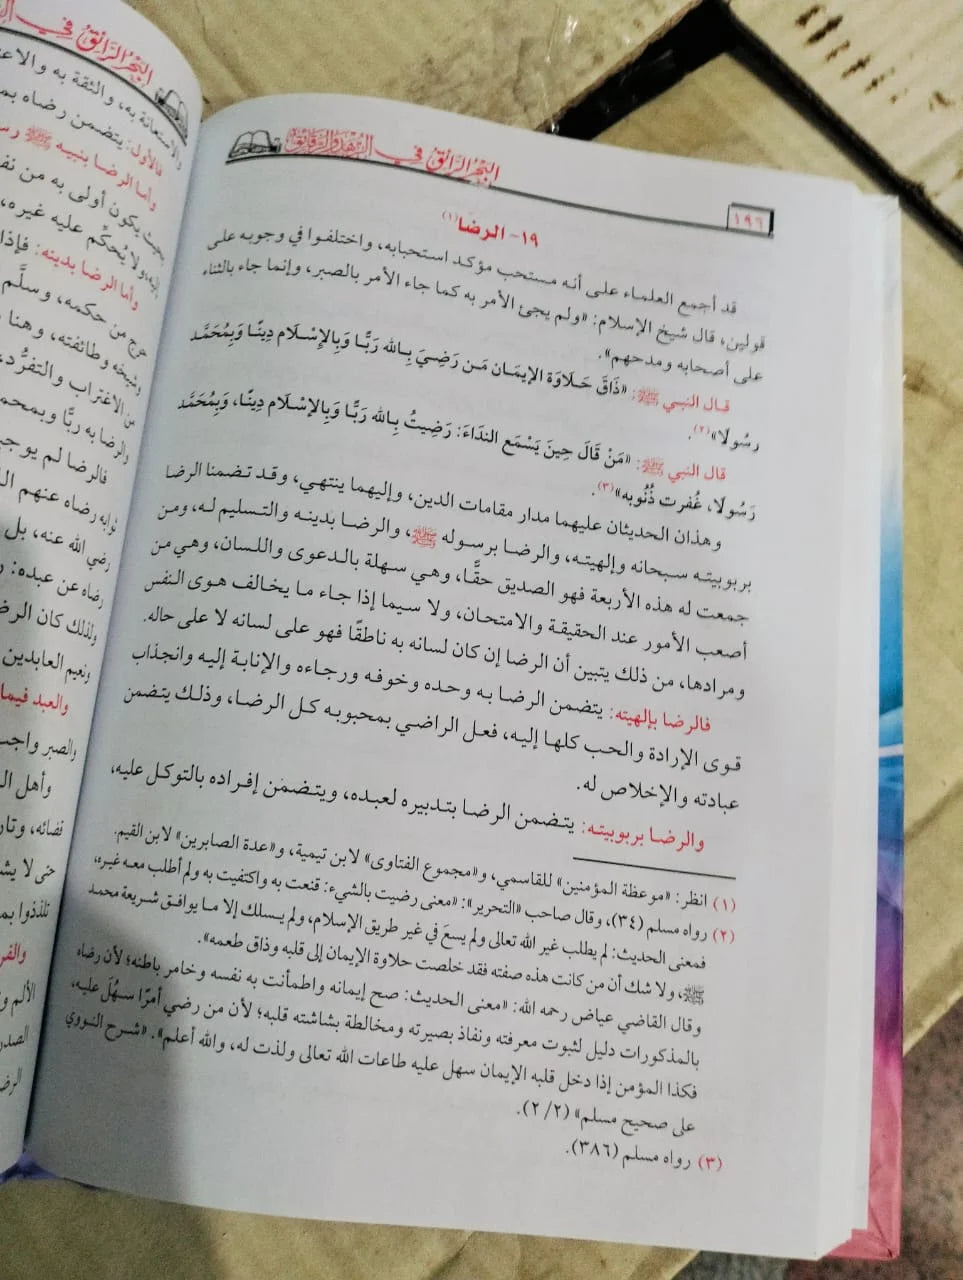 البحر الرائق في الزهد والرقائق
١٩٦
١٩- الرضا(١)
قد أجمع العلماء على أنه مستحب مؤكد استحبابه، واختلفوا في وجوبه على
قولين، قال شيخ الإسلام: «ولم يجئ الأمر به كما جاء الأمر بالصبر، وإنما جاء بالثناء
على أصحابه ومدحهم».
قال النبي ﷺ: «ذَاقَ حَلَاوَةَ الإيمَانِ مَن رَضِيَ بِالله رَبًّا وَبِالإِسْلَامِ دِينًا وَبِمُحَمَّد
رسُولًا»(٢).
قال النبي ﷺ: «مَنْ قَالَ حِينَ يَسْمَع النداءَ: رَضِيتُ بِالله رَبًّا وَبِالإسْلَامِ دِينًا، وَبِمُحَمَّد
رَسُولًا، غُفرت ذُنُوبه»(٣).
وهذان الحديثان عليهما مدار مقامات الدين، وإليهما ينتهي، وقد تضمنا الرضا
بربوبيته سبحانه وإلهيته، والرضا برسوله ﷺ، والرضا بدينه والتسليم له، ومن
جمعت له هذه الأربعة فهو الصديق حقًّا، وهي سهلة بالدعوى واللسان، وهي من
أصعب الأمور عند الحقيقة والامتحان، ولا سيما إذا جاء ما يخالف هوى النفس
ومرادها، من ذلك يتبين أن الرضا إن كان لسانه به ناطقًا فهو على لسانه لا على حاله.
فالرضا بإلهيته: يتضمن الرضا به وحده وخوفه ورجاءه والإنابة إليه وانجذاب
قوى الإرادة والحب كلها إليه، فعل الراضي بمحبوبه كل الرضا، وذلك يتضمن
عبادته والإخلاص له.
والرضا بربوبيته: يتضمن الرضا بتدبيره لعبده، ويتضمن إفراده بالتوكل عليه،
(١) انظر: «موعظة المؤمنين» للقاسمي، و«مجموع الفتاوى» لابن تيمية، و«عدة الصابرين» لابن القيم.
(٢) رواه مسلم (٣٤)، وقال صاحب «التحرير»: «معنى رضيت بالشيء: قنعت به واكتفيت به ولم أطلب معه غيره،
فمعنى الحديث: لم يطلب غير الله تعالى ولم يسعَ في غير طريق الإسلام، ولم يسلك إلا ما يوافق شريعة محمد
ﷺ، ولا شك أن من كانت هذه صفته فقد خلصت حلاوة الإيمان إلى قلبه وذاق طعمه».
وقال القاضي عياض رحمه الله: «معنى الحديث: صح إيمانه واطمأنت به نفسه وخامر باطنه؛ لأن رضاه
بالمذكورات دليل لثبوت معرفته ونفاذ بصيرته ومخالطة بشاشته قلبه؛ لأن من رضي أمرًا سهُلَ عليه،
فكذا المؤمن إذا دخل قلبه الإيمان سهل عليه طاعات الله تعالى ولذت له، والله أعلم». «شرح النووي
على صحيح مسلم» (٢/ ٢).
(٣) رواه مسلم (٣٨٦).
البحر الرائق في
والاستعانة به، والثقة به
فالأول: يتضمن رضاه
وأما الرضا بنبيه ﷺ
يكون أولى به من
ولا يُحكِّم عليه غيره،
وأما الرضا بدينه: فإذا
حرج من حكمه، وسلَّم
وشيخه وطائفته، وهنا
من الاغتراب والتفرُّد،
والرضا به ربًّا وبمحمد
فالرضا لم
ثوابه رضاه عنهم
رضي الله عنه، بل
رضاه عن عبده:
ولذلك كان الرضا
ونعيم العابدين
والعبد فيما
والصبر واجب
وأهل
قضائه،
حتى لا
تلذذوا
الألم